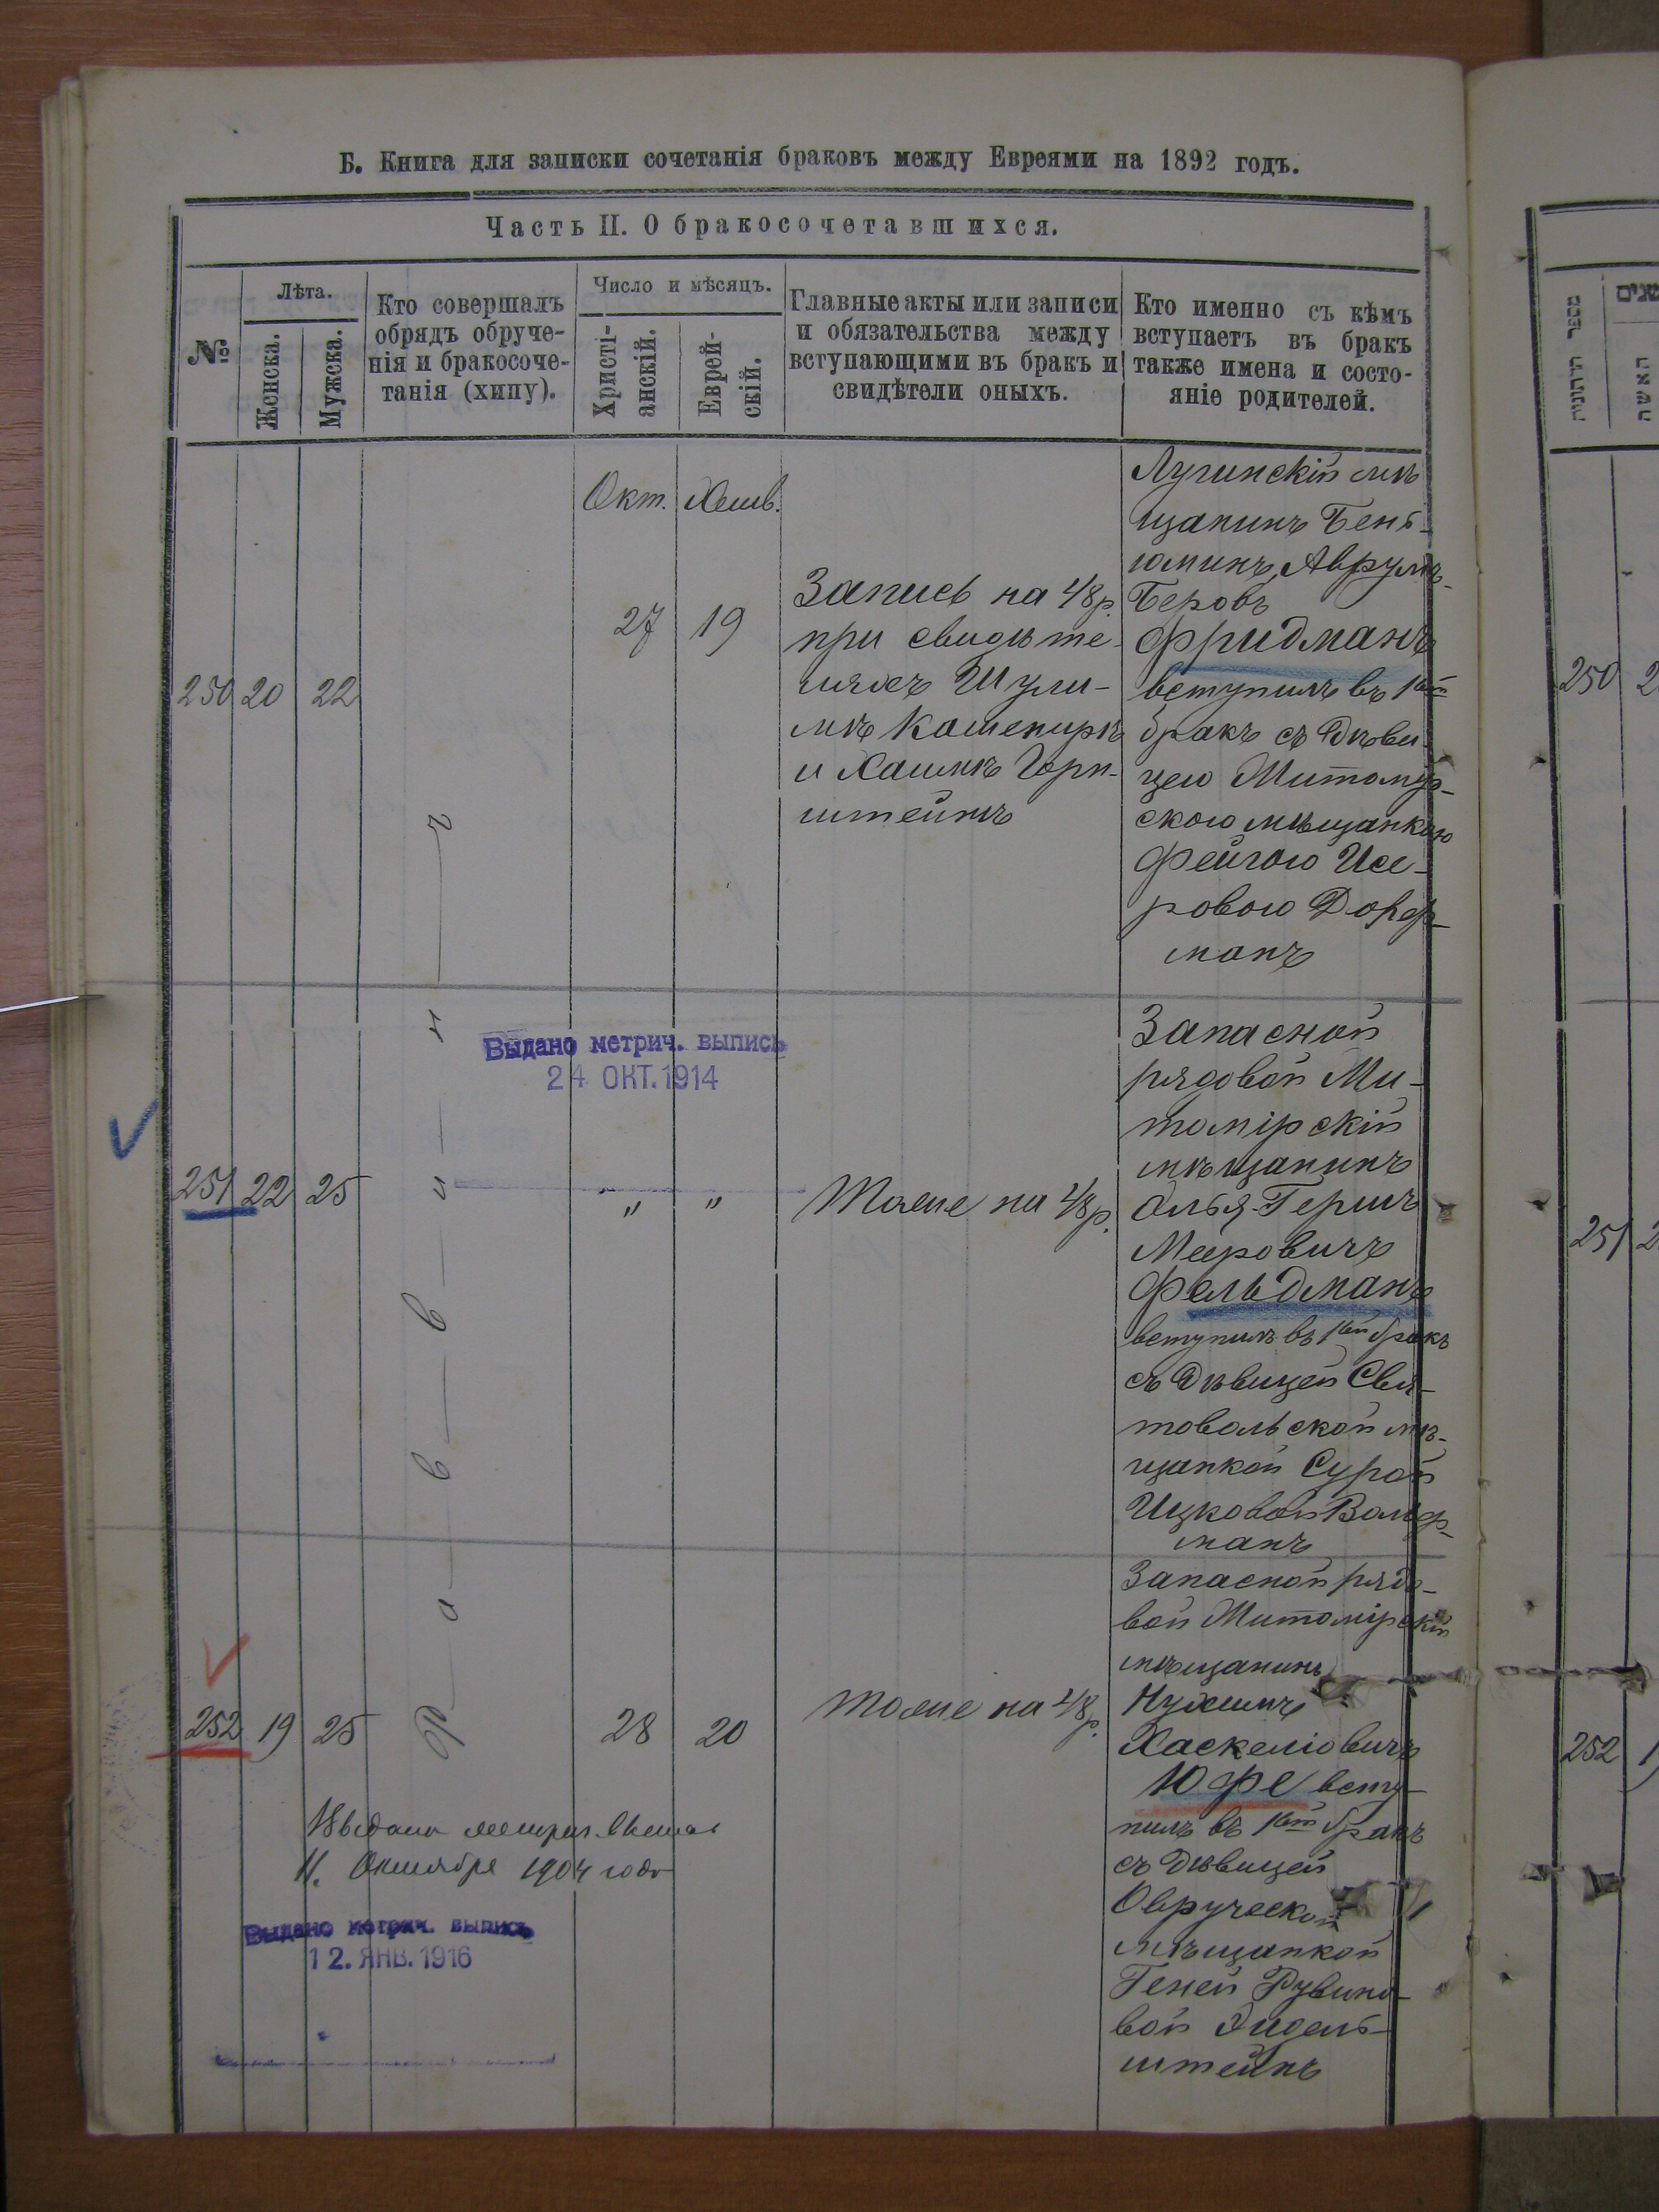 Б. Книга для записки сочетанія браковъ между Евреями на 1892 годъ.
Часть II. О бракосочетавшихся.
№
Лѣта.
Женска.
Мужска.
Кто совершалъ
обрядъ обруче-
нія и бракосоче-
танія (хипу).
Число и мѣсяцъ.
Христі-
анскій.
Еврей-
скій.
Главные акты или записи
и обязательства между
вступающими въ бракъ и
свидѣтели оныхъ.
Кто именно съ кѣмъ
вступаетъ въ бракъ
также имена и состо-
яніе родителей.
250 20 22
Раввинъ
Окт. Хешв.
27 19
Запись на 48 р.
при свидѣте-
ляхъ Шули-
мѣ Кошенирѣ
и Хаимѣ Горн-
штейнъ
Лугинскій мѣ
щанинъ Бень-
юминъ, Аврумъ-
Беровъ
Фридманъ
вступилъ въ 1ый
бракъ съ дѣви-
цею Житомір-
скою мѣщанкою
Фейгою Исе-
ровою Дорф-
манъ
Выдано метрич. выпись
24 ОКТ. 1914
251 22 25
" "
Тоже на 48 р.
Запасной
рядовой Жи-
томірскій
мѣщанинъ
Элья-Гершъ
Меровичъ
Фельдманъ
вступилъ въ 1ый бракъ
съ дѣвицей Свя-
товольской мѣ-
щанкой Сурой
Ицковой Вольф-
манъ
252 19 25
28 20
Тоже на 48 р.
Запасной рядо-
вой Житомірскій
мѣщанинъ
Нухимъ
Хаскеліовичъ
Юфе всту-
пилъ въ 1ый бракъ
съ дѣвицей
Овручской
мѣщанкой
Геней Рувино-
вой Эйдель-
штейнъ
Выдана метрич. выпись
11. Октября 1904 года
Выдано метрич. выпись
12. ЯНВ. 1916
מספר
שנים
האשה
250
251
252